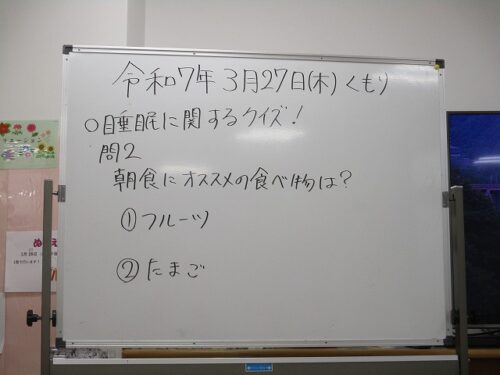 令和7年 3月27日(木) くもり
○睡眠に関するクイズ!
問2
朝食にオススメの食べ物は?
①フルーツ
②たまご